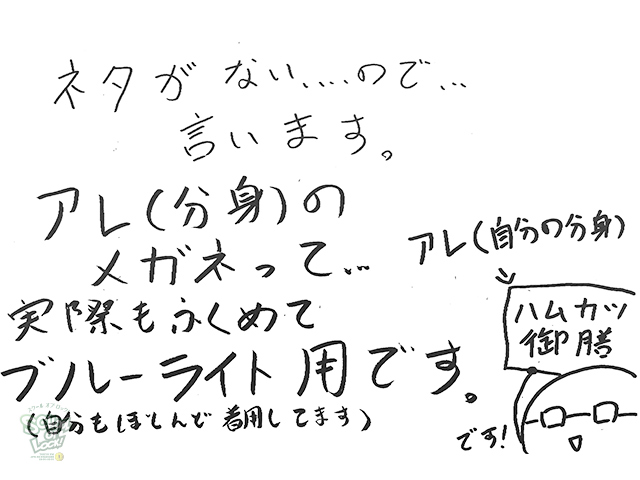 ネタがない....ので...
言います。
アレ(分身)の
メガネって...
実際もふくめて
ブルーライト用です。
(自分もほとんど着用してます)
アレ(自分の分身)
ハムカツ
御膳
です!
SCHOOL
OF
LOCK!